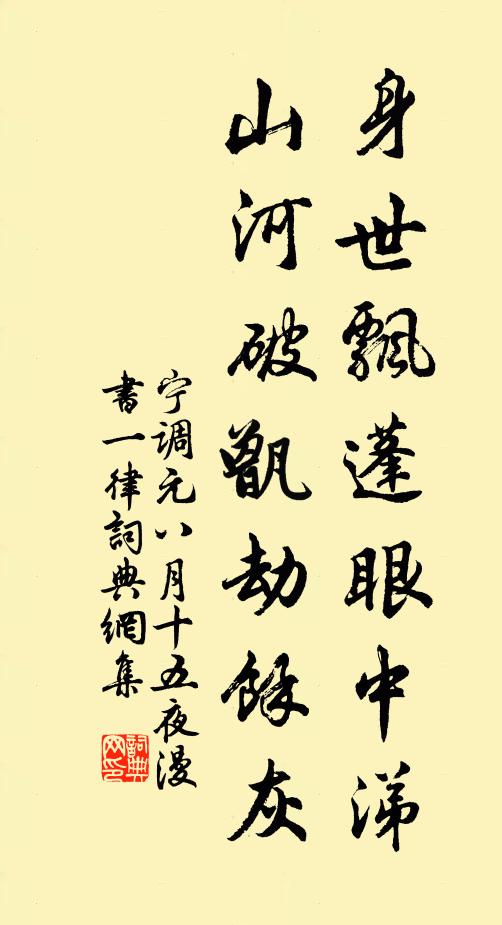 身世飄蓬眼中涕
山河破甑劫餘灰
宁调元八月十五夜漫
書一律詞典網集
詞典
网印